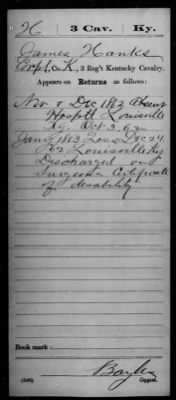 H 3 Cav. Ky.
James Hanks
Corpl, Co. K, 3 Reg't Kentucky Cavalry.
Appears on Returns as follows:
Nov & Dec 1863 Absent
Hospitl Louisville
Ky. Oct. 3, 62
Jany 1863 Loss Dec 24
/62 Louisville Ky
Discharged on
Surgeons Certificate
of disability
Book mark:
(546) Copyist.